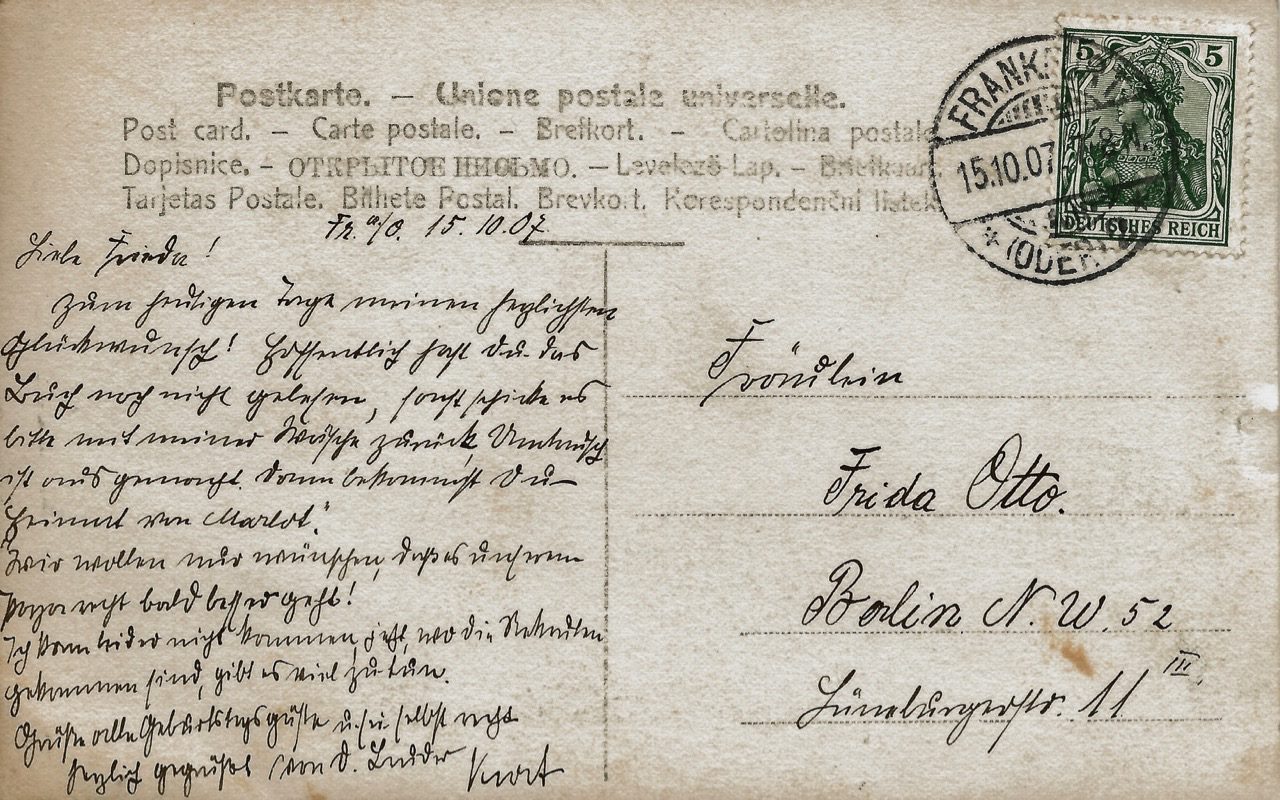 Postkarte. — Unione postale universelle.
Post card. – Carte postale. – Brefkort. – Cartolina postale
Dopisnice. – ОТКРЫТОЕ ПИСЬМО. – Levelező-Lap. – Briefkaart.
Tarjetas Postale. Bilhete Postal. Brevkort. Korespondenční lístek
Fr. a/O. 15.10.07.
Liebe Frieda!
Zum heutigen Tage meinen herzlichsten
Glückwunsch! Hoffentlich hast Du das
Buch noch nicht gelesen, sonst schicke es
bitte mit meiner Wäsche zurück, Umtausch
ist ausgemacht. Dann bekommst Du
von
Wir wollen nur wünschen, daß es unserem
Papa recht bald besser geht!
Ich kann leider nicht kommen, jetzt, wo die Rekruten
gekommen sind, gibt es viel zu tun.
Grüße alle Geburtstagsgäste u. sei selbst recht
herzlich gegrüßt von D. Bruder Kurt
5 5
DEUTSCHES REICH
FRANKFURT
15.10.07
(ODER)
Fräulein
Frida Otto.
Berlin N.W. 52
Lüneburgerstr. 11 III.